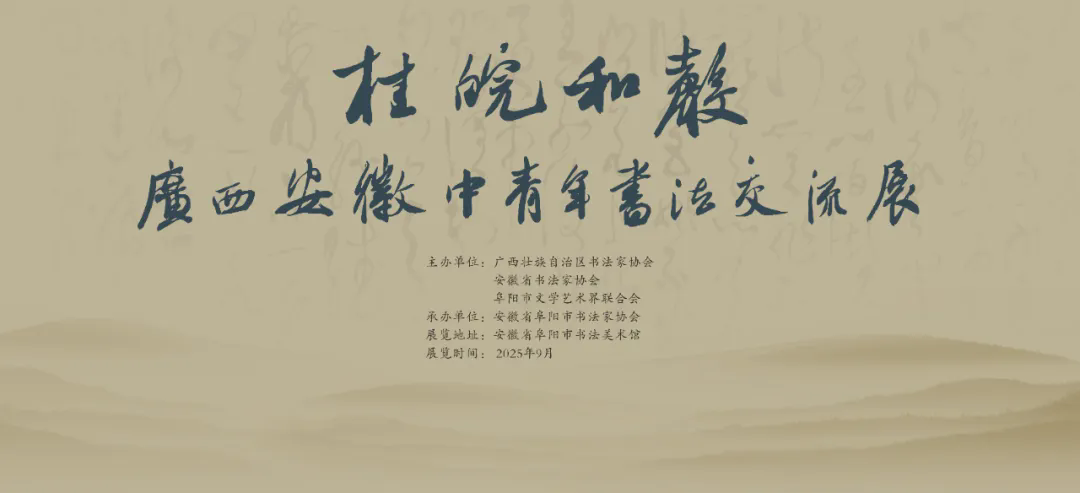 桂皖和聲
廣西安徽中青年書法交流展
主办单位：广西壮族自治区书法家协会
安徽省书法家协会
阜阳市文学艺术界联合会
承办单位：安徽省阜阳市书法家协会
展览地址：安徽省阜阳市书法美术馆
展览时间：2025年9月